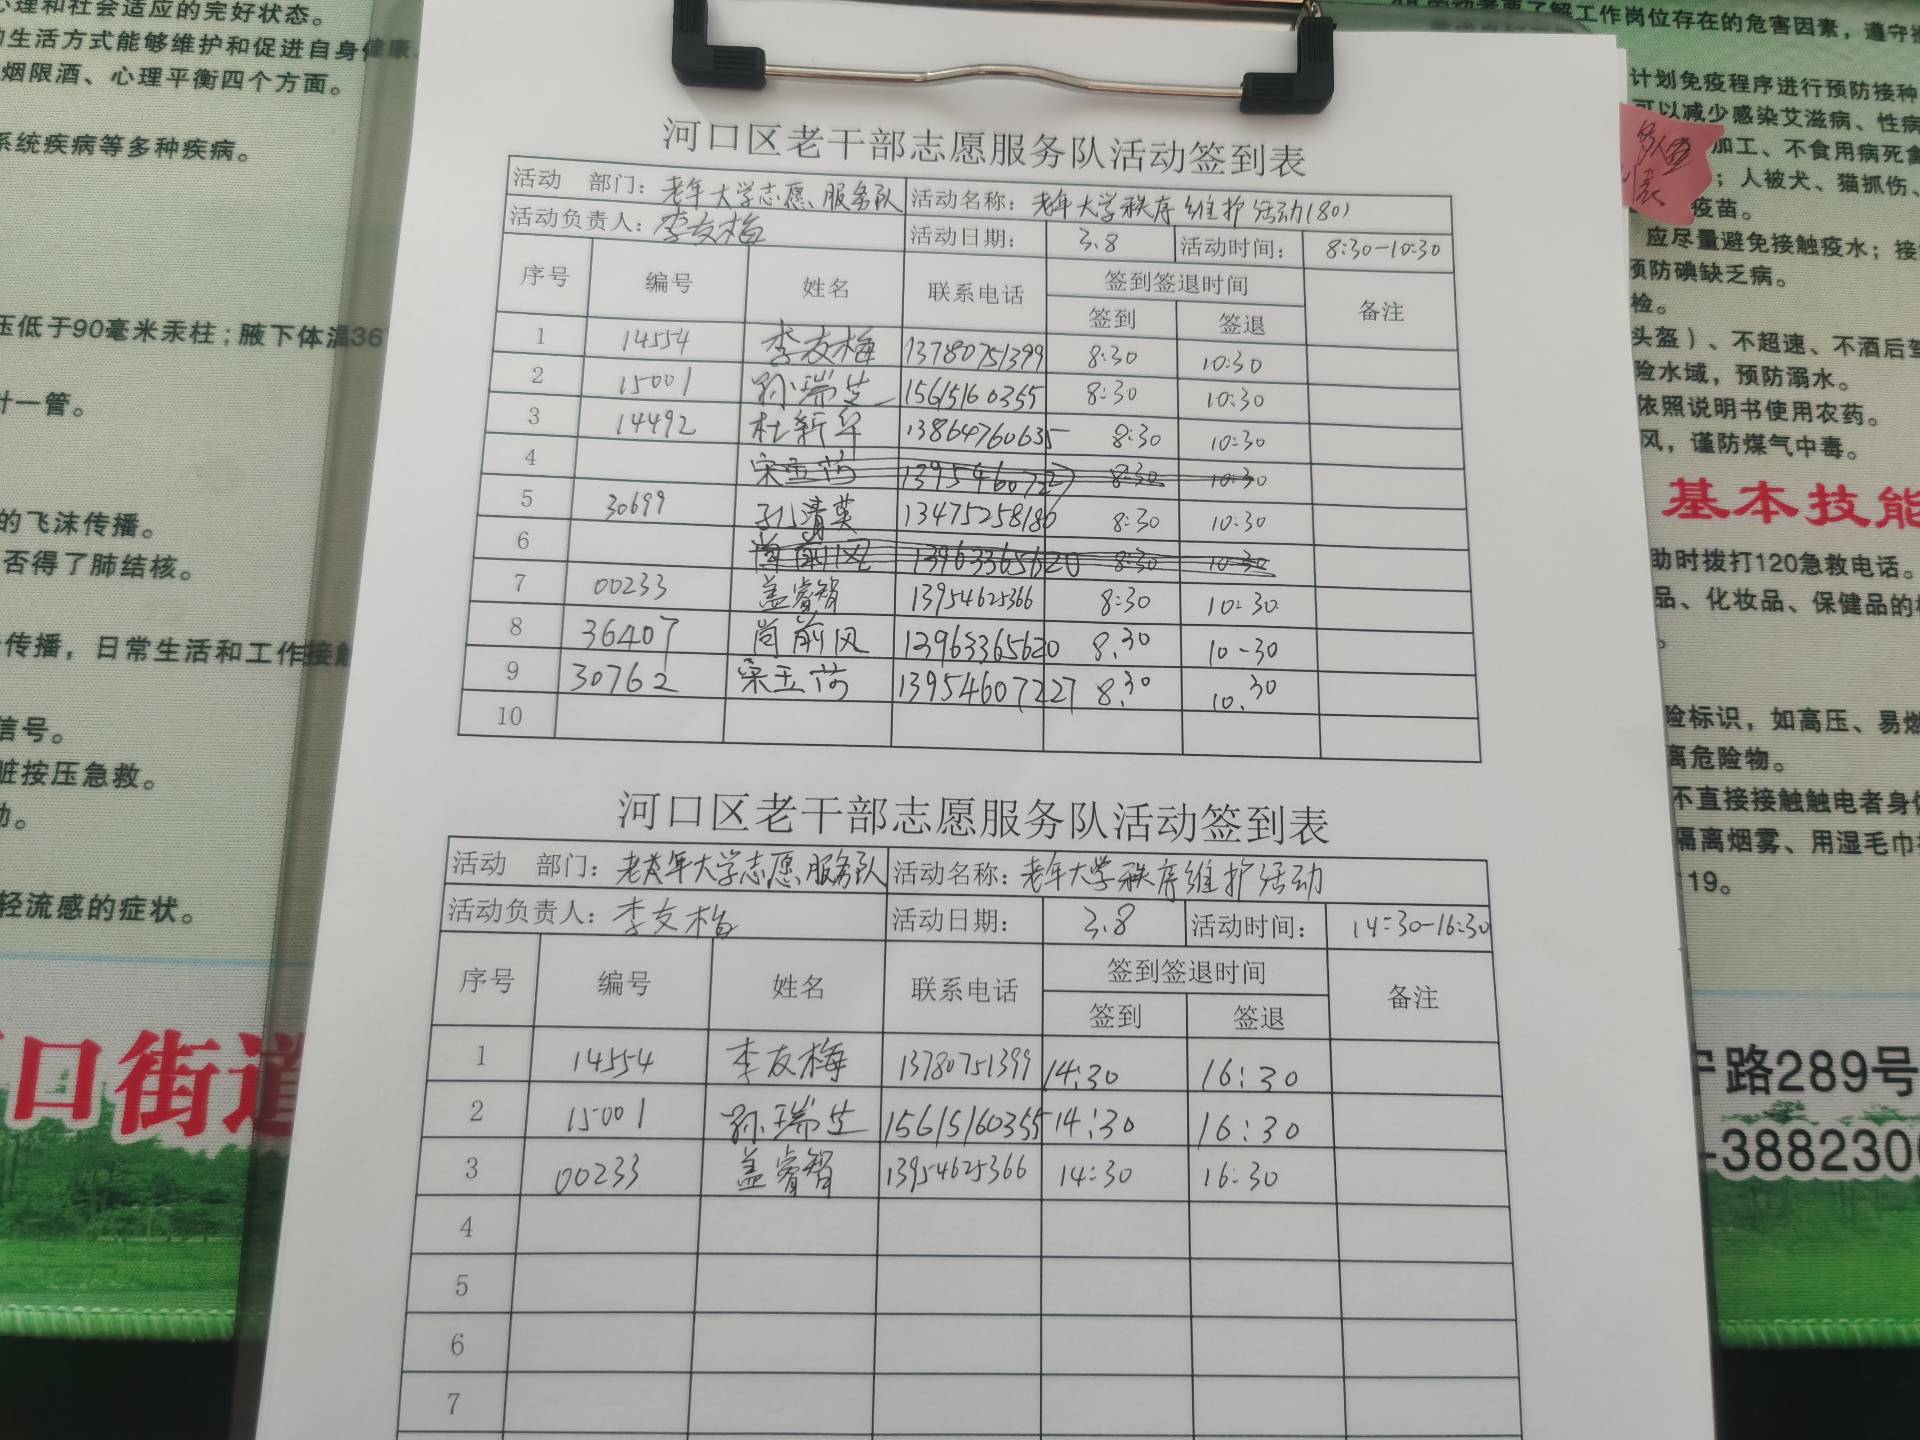 心理和社会适应的完好状态。
的生活方式能够维护和促进自身健康、
烟限酒、心理平衡四个方面。
系统疾病等多种疾病。
压低于90毫米汞柱；腋下体温36
计一管。
的飞沫传播。
否得了肺结核。
传播，日常生活和工作接触
信号。
脏按压急救。
动。
轻流感的症状。
口街道
河口区老干部志愿服务队活动签到表
活动 部门：老年大学志愿服务队 活动名称：老年大学秩序维护活动(80)
活动负责人：李友梅 活动日期： 3.8 活动时间： 8:30-10:30
序号 编号 姓名 联系电话 签到签退时间 备注
签到 签退
1 14554 李友梅 13780751399 8:30 10:30
2 15001 孙瑞芝 15615160355 8:30 10:30
3 14492 杜新华 13864760635 8:30 10:30
4 宋玉荷 13954607227 8:30 10:30
5 30699 孔清英 13475258180 8:30 10:30
6 尚前风 13963365620 8:30 10:30
7 00233 盖睿智 13954625366 8:30 10:30
8 36407 尚前风 13963365620 8.30 10-30
9 30762 宋玉荷 13954607227 8.30 10.30
10
河口区老干部志愿服务队活动签到表
活动 部门：老年大学志愿服务队 活动名称：老年大学秩序维护活动
活动负责人：李友梅 活动日期： 3.8 活动时间： 14:30-16:30
序号 编号 姓名 联系电话 签到签退时间 备注
签到 签退
1 14554 李友梅 13780751399 14:30 16:30
2 15001 孙瑞芝 15615160355 14:30 16:30
3 00233 盖睿智 13954625366 14:30 16:30
4
5
6
7
动者要了解工作岗位存在的危害因素，遵守操
计划免疫程序进行预防接种
可以减少感染艾滋病、性病
加工、不食用病死禽
；人被犬、猫抓伤、
疫苗。
应尽量避免接触疫水；接
预防碘缺乏病。
检。
头盔）、不超速、不酒后驾
险水域，预防溺水。
依照说明书使用农药。
风，谨防煤气中毒。
基本技能
助时拨打120急救电话。
品、化妆品、保健品的
险标识，如高压、易燃
离危险物。
不直接接触触电者身体
隔离烟雾、用湿毛巾
119。
路289号
-388230